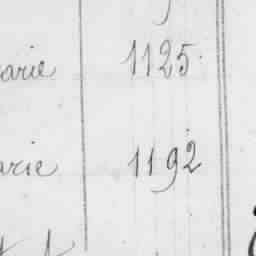 arie 1125
arie 1192